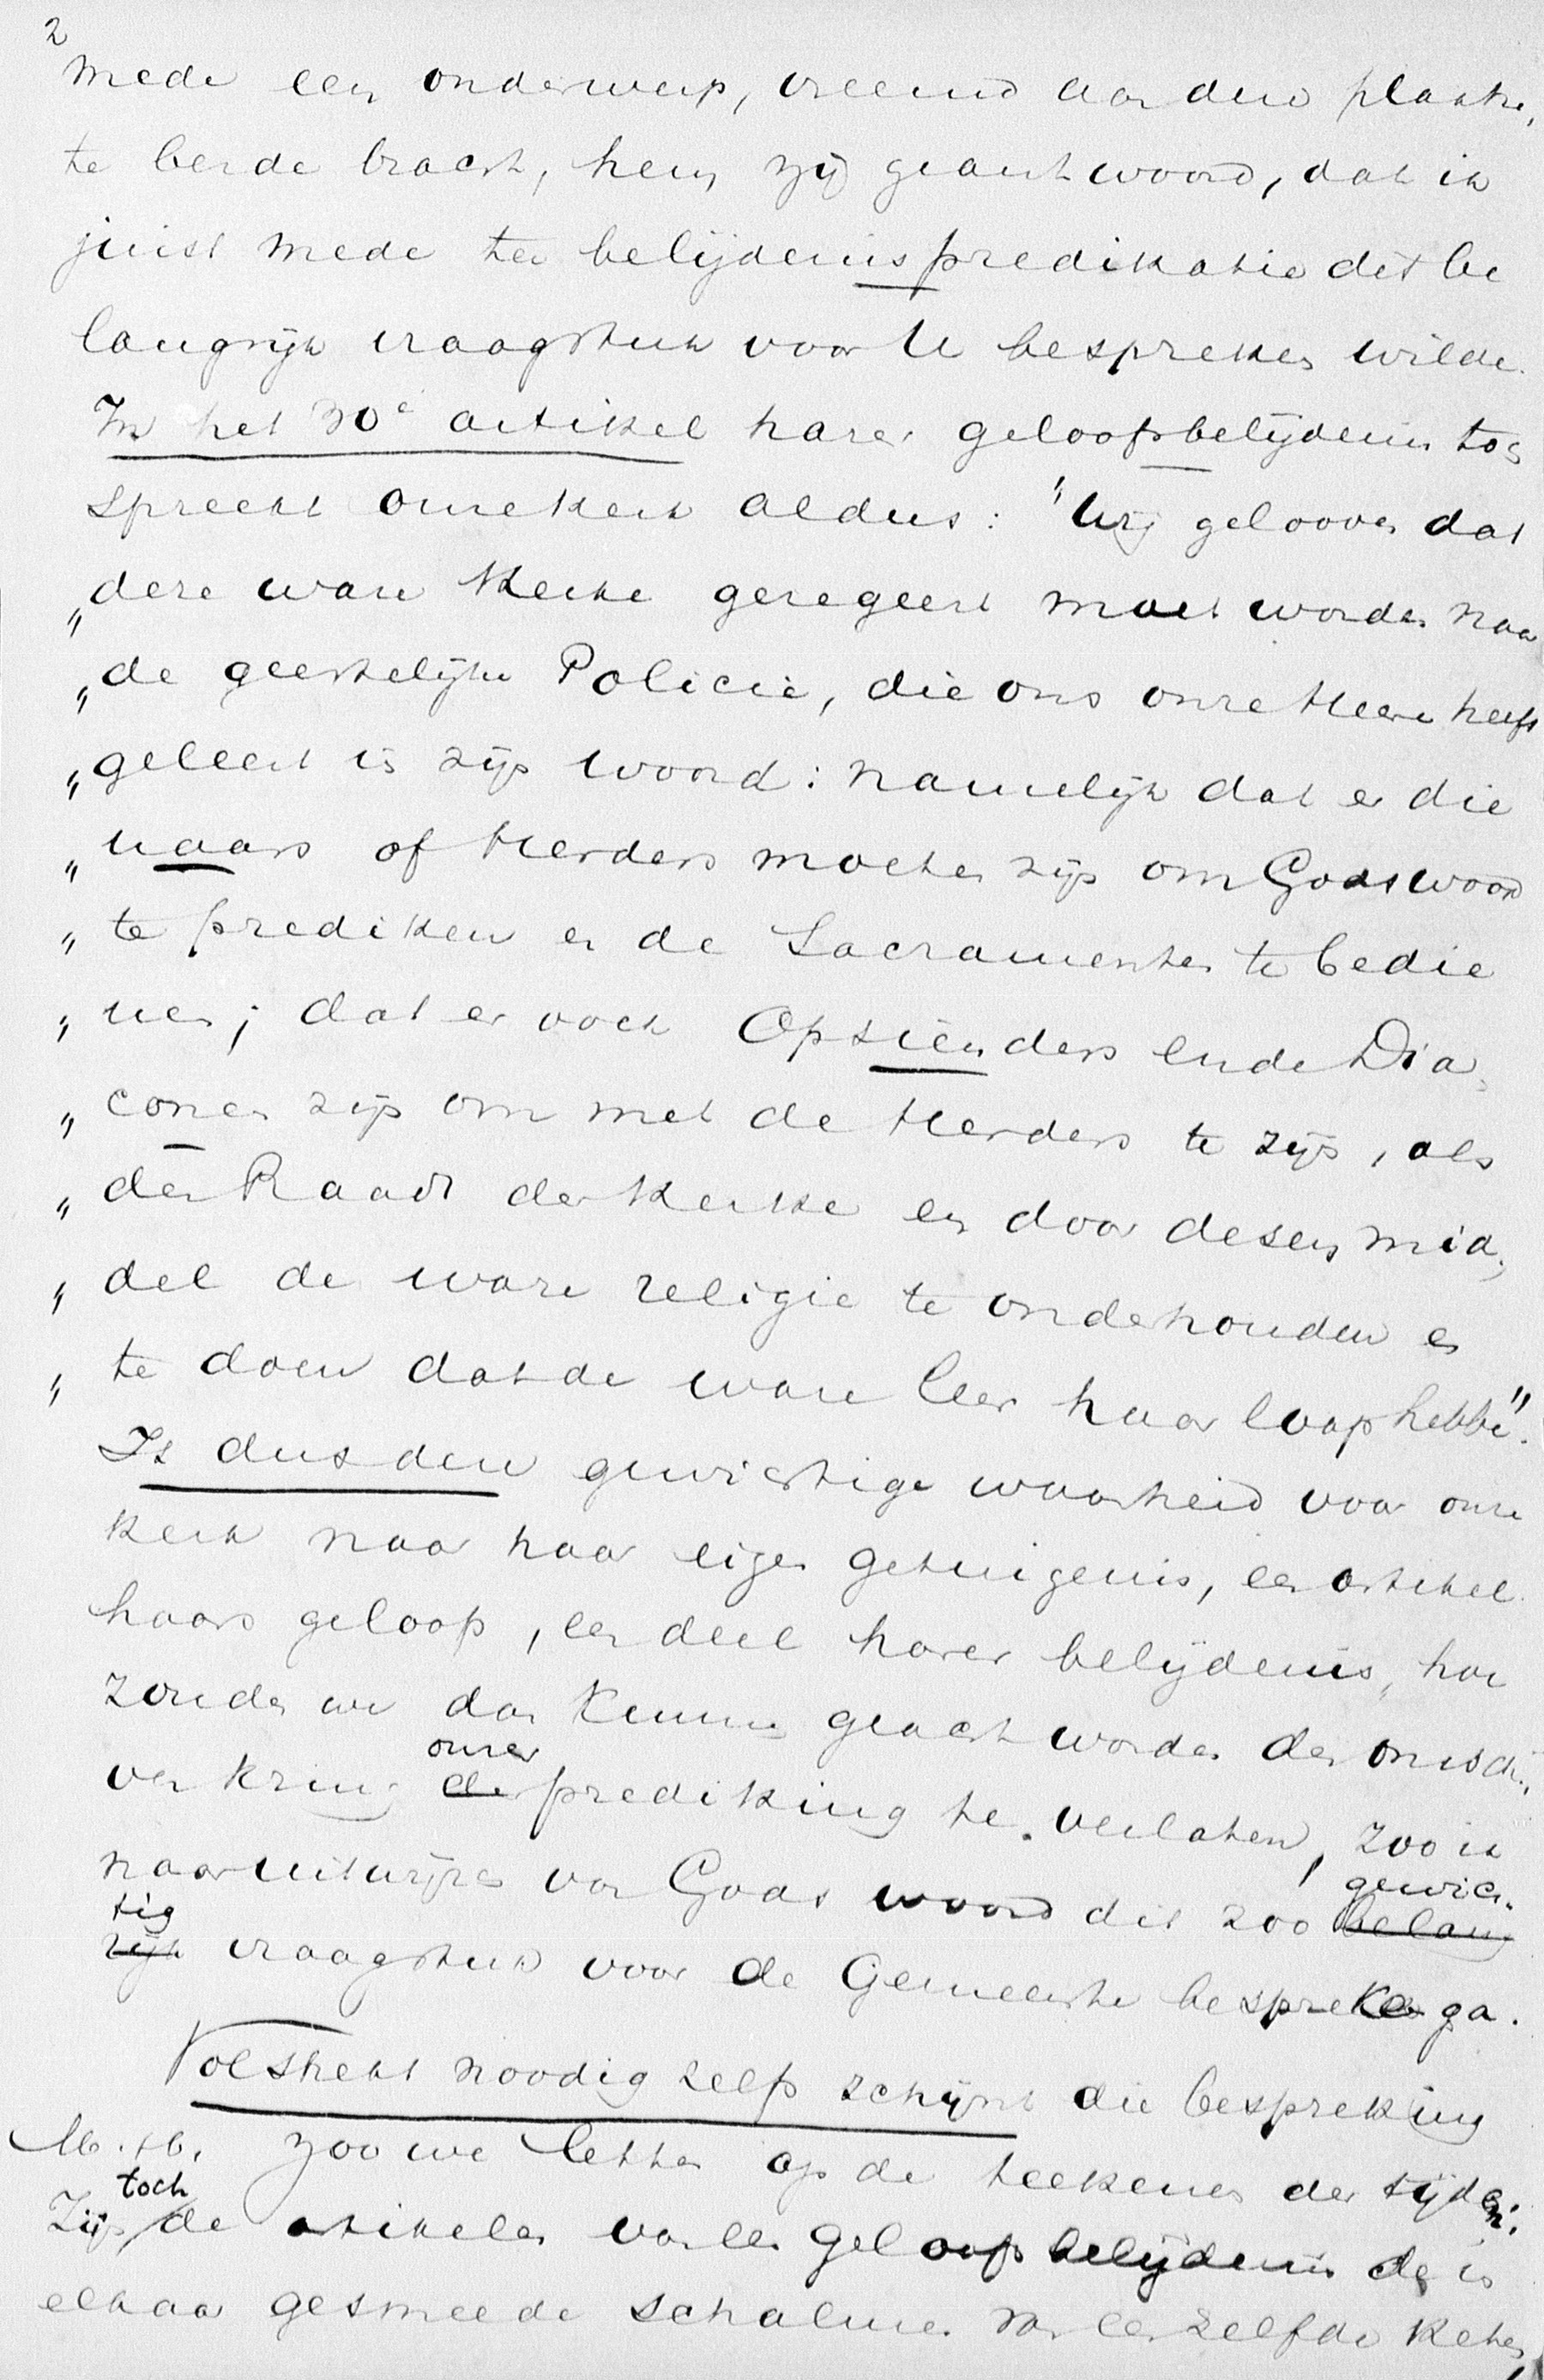 2
mede een onderwerp, vreemd aan deze plaatse,
te berde bracht, hem zij geantwoord, dat ik
juist mede ter belijdenispredikatie dit be
langrijk vraagstuk voor U bespreken wilde.
In het 30e artikel harer geloofsbelijdenis toch
spreekt onze kerk aldus: "Wij gelooven dat
"dese ware Kerke geregeert moet worden naar
"de geestelijke Policie, die ons onze Heere heeft
"geleert in zijn woord: namelijk dat er die
"naars of Herders moeten zijn om Gods woord
"te prediken en de Sacramenten te bedie
"nen; dat er oock Opsienders ende Dia,
"conen zijn om met de Herders te zijn, als
"den Raadt der Kerke en door desen mid,
"del de ware religie te onderhouden en
"te doen dat de ware leer haar loop hebbe".
Is dus deze gewichtige waarheid voor onze
kerk naar haar eigen getuigenis, een artikel
haars geloofs, een deel harer belijdenis, hoe
zouden we dan kunnen geacht worden den onisch..
onzer
ven kring der prediking te verlaten, zoo ik
naar uitwijzen van Gods woord dit zoo belang
gewich.
tig
rijk vraagstuk voor de Gemeente bespreken ga.
Volstrekt noodig zelfs schijnt die bespreking
M. H. zoo we letten op de teekenen der tijden:
toch
Zijn de artikelen van een geloofsbelijdenis de in
elkaar gesmeede schalmen van eenzelfde keten